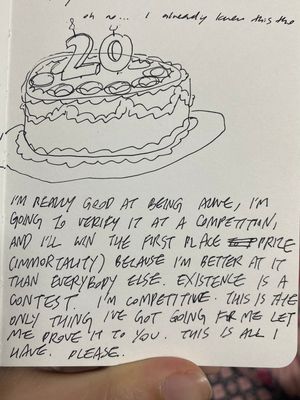 oh no... I already knew this the
20
I'M REALLY GOOD AT BEING ALIVE, I'M
GOING TO VERIFY IT AT A COMPETITION,
AND I'LL WIN THE FIRST PLACE PRIZE
(IMMORTALITY) BECAUSE I'M BETTER AT IT
THAN EVERYBODY ELSE. EXISTENCE IS A
CONTEST. I'M COMPETITIVE. THIS IS THE
ONLY THING I'VE GOT GOING FOR ME LET
ME PROVE IT TO YOU. THIS IS ALL I
HAVE. PLEASE.